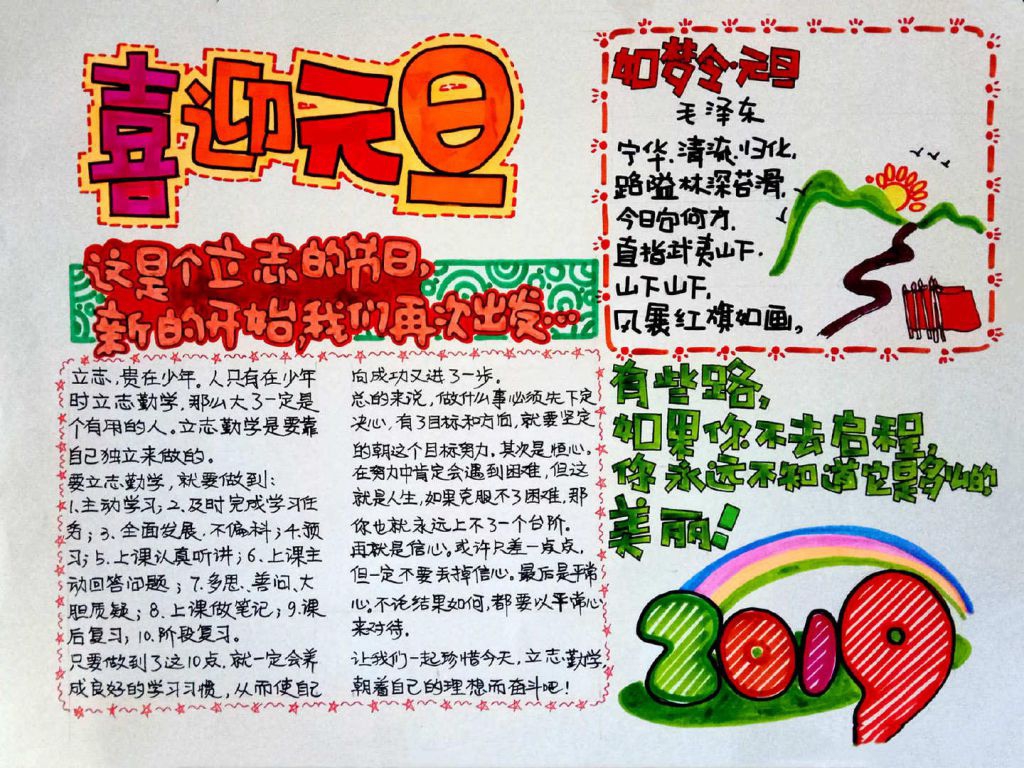 喜迎元旦
这是个立志的节日,
新的开始,我们再次出发…
立志,贵在少年。人只有在少年
时立志勤学,那么大了一定是
个有用的人。立志勤学是要靠
自己独立来做的。
要立志勤学,就要做到:
1.主动学习;2.及时完成学习任
务;3.全面发展.不偏科;4.预
习;5.上课认真听讲;6.上课主
动回答问题;7.多思、善问、大
胆质疑;8.上课做笔记;9.课
后复习;10.阶段复习。
只要做到了这10点,就一定会养
成良好的学习习惯,从而使自己
向成功又进了一步。
总的来说,做什么事必须先下定
决心,有了目标和方向,就要坚定
的朝这个目标努力。其次是恒心。
在努力中肯定会遇到困难,但这
就是人生,如果克服不了困难,那
你也就永远上不了一个台阶。
再就是信心。或许只差一点点,
但一定不要丢掉信心。最后是平常
心。不论结果如何,都要以平常心
来对待.
让我们一起珍惜今天,立志勤学,
朝着自己的理想而奋斗吧!
如梦令·元旦
毛泽东
宁化、清流、归化,
路隘林深苔滑.
今日向何方.
直指武夷山下.
山下山下,
风展红旗如画。
有些路,
如果你不去启程,
你永远不知道它是多么的
美丽!
2019